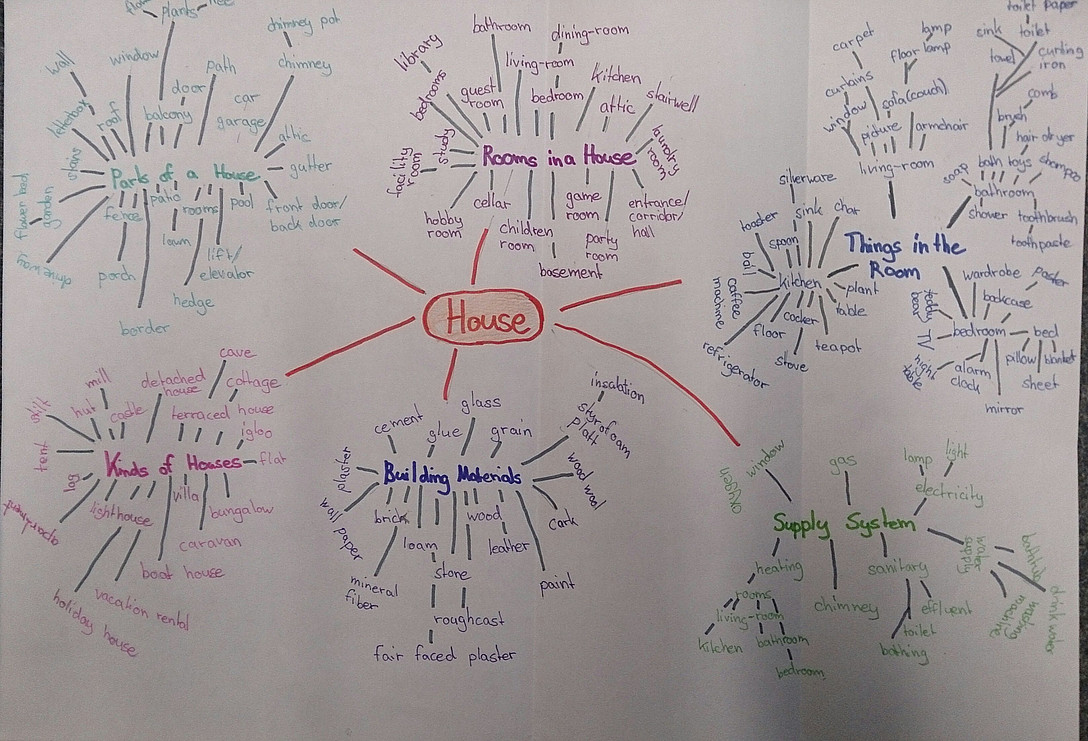 House
Parts of a House
plants
wall
window
door
path
chimney pot
chimney
car
garage
attic
gutter
front door/
back door
pool
lift/
elevator
hedge
rooms
patio
lawn
border
porch
fence
driveway
garden
flower bed
stairs
letterbox
roof
balcony
Rooms in a House
library
bedrooms
bathroom
guest
room
living-room
dining-room
bedroom
kitchen
attic
stairwell
laundry
room
entrance/
corridor/
hall
party
room
game
room
basement
children
room
cellar
hobby
room
facility
room
study
Things in the
Room
living-room
window
curtains
carpet
picture
sofa(couch)
floor lamp
lamp
armchair
bathroom
soap
bath toys
shampo
toothbrush
toothpaste
shower
hair dryer
brush
comb
curling
iron
towel
sink
toilet
toilet paper
kitchen
silverware
toaster
spoon
sink
chair
plant
table
teapot
cocker
stove
floor
refrigerator
coffee
machine
bedroom
wardrobe
bookcase
bed
blanket
pillow
sheet
mirror
alarm
clock
TV
teddy
bear
Kinds of Houses
cave
mill
hut
castle
detached
house
cottage
terraced house
igloo
flat
bungalow
villa
caravan
boat house
vacation rental
holiday house
lighthouse
apartment
log
tent
Building Materials
cement
glue
glass
grain
insolation
styrofoam
platt
wood wool
cork
paint
leather
wood
stone
roughcast
fair faced plaster
loam
brick
mineral
fiber
wall paper
plaster
Supply System
oxygen
window
gas
lamp
light
electricity
water
supply
bathing
drink water
washing
machine
sanitary
effluent
toilet
bathing
chimney
heating
rooms
living-room
kitchen
bathroom
bedroom